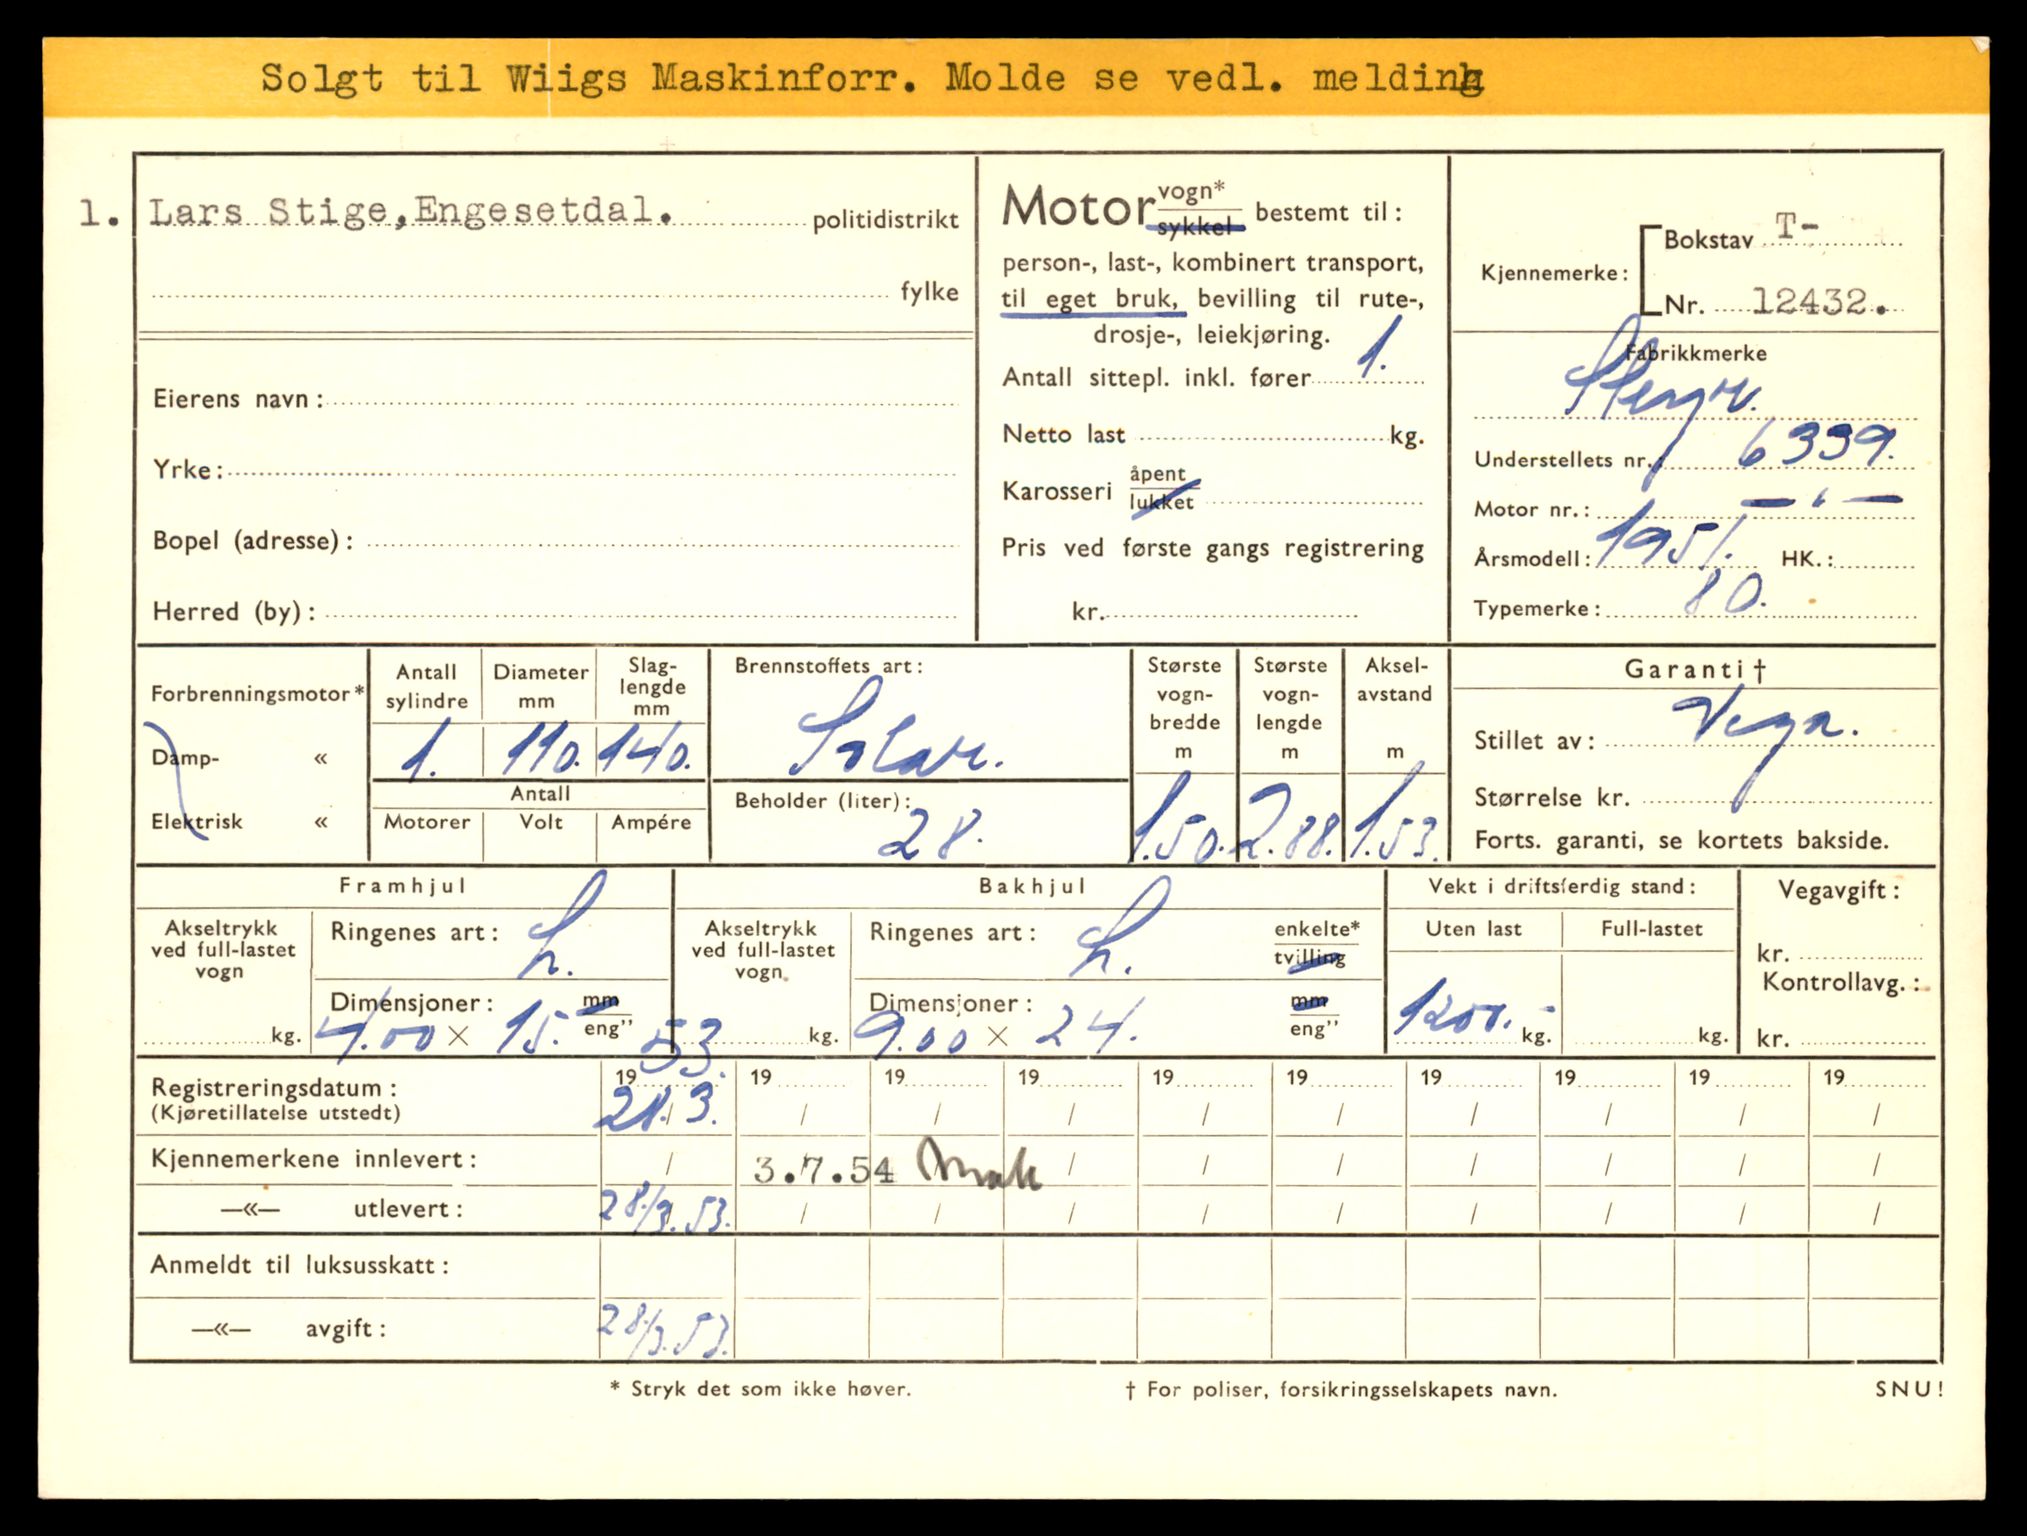 Solgt til Wiigs Maskinforr. Molde se vedl. melding
1. Lars Stige, Engesetdal. politidistrikt
fylke
Eierens navn:
Yrke:
Bopel (adresse):
Herred (by):
Motor vogn* sykkel bestemt til:
person-, last-, kombinert transport,
til eget bruk, bevilling til rute-,
drosje-, leiekjøring.
Antall sittepl. inkl. fører 1.
Netto last kg.
Karosseri åpent lukket
Pris ved første gangs registrering
kr.
Kjennemerke: Bokstav T-
Nr. 12432.
Fabrikkmerke
Steyr.
Understellets nr.: 6339.
Motor nr.: — " —
Årsmodell: 1951. HK.:
Typemerke: 80.
Forbrenningsmotor*
Damp- «
Elektrisk «
Antall sylindre 1.
Diameter mm 110.
Slaglengde mm 140.
Antall
Motorer Volt Ampére
Brennstoffets art: Solar.
Beholder (liter): 28.
Største vogn-bredde m 1.50.
Største vogn-lengde m 2.88.
Aksel-avstand m 1.53.
Garanti †
Stillet av: Vega.
Størrelse kr.
Forts. garanti, se kortets bakside.
Framhjul
Akseltrykk ved full-lastet vogn kg.
Ringenes art: L.
Dimensjoner: mm eng"
4.00 × 15.
Bakhjul
Akseltrykk ved full-lastet vogn kg.
Ringenes art: L. enkelte* tvilling
Dimensjoner: mm eng"
9.00 × 24.
Vekt i driftsferdig stand:
Uten last Full-lastet
1200.- kg. kg.
Vegavgift:
kr.
Kontrollavg.:
kr.
Registreringsdatum: 1953. 19 19 19 19 19 19 19 19 19
(Kjøretillatelse utstedt) 28/3. / / / / / / / / /
Kjennemerkene innlevert: / 3.7.54 / / / / / / /
—«— utlevert: 28/3.53. / / / / / / / / /
Anmeldt til luksusskatt:
—«— avgift: 28/3.53.
* Stryk det som ikke høver. † For poliser, forsikringsselskapets navn. SNU!